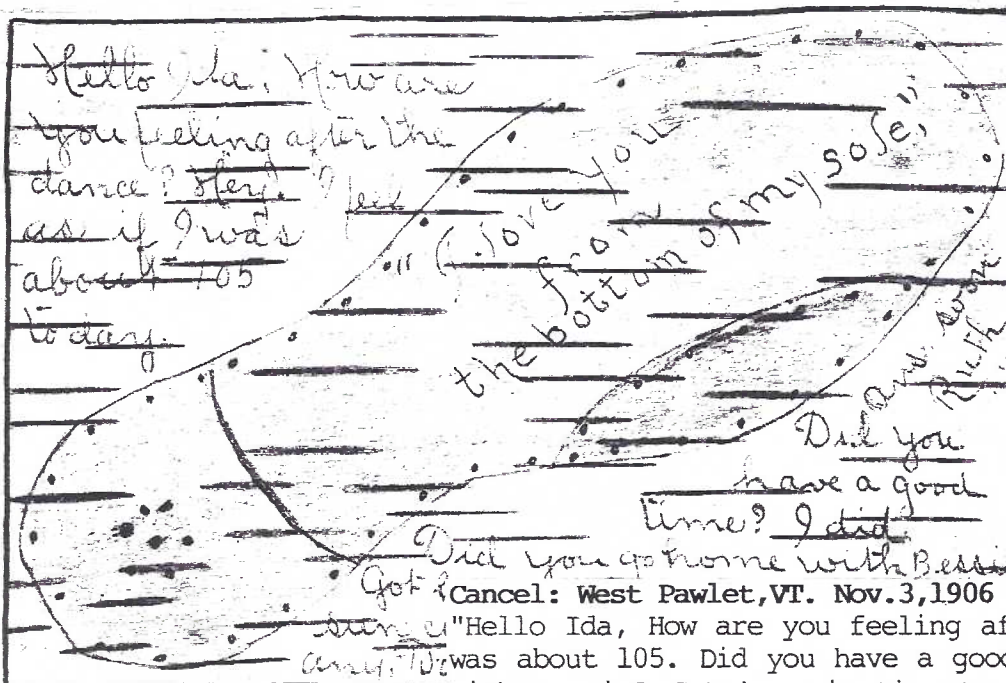 Hello Ida, How are
you feeling after the
dance? Hey? I feel
as if I was
about 105
today.
"I love you
from
the bottom of my sole,"
Did you
have a good
time? I did
Did you go home with Bessi
Got
any
Ans soon
Ruth
Cancel: West Pawlet,VT. Nov.3,1906
"Hello Ida, How are you feeling af
was about 105. Did you have a good